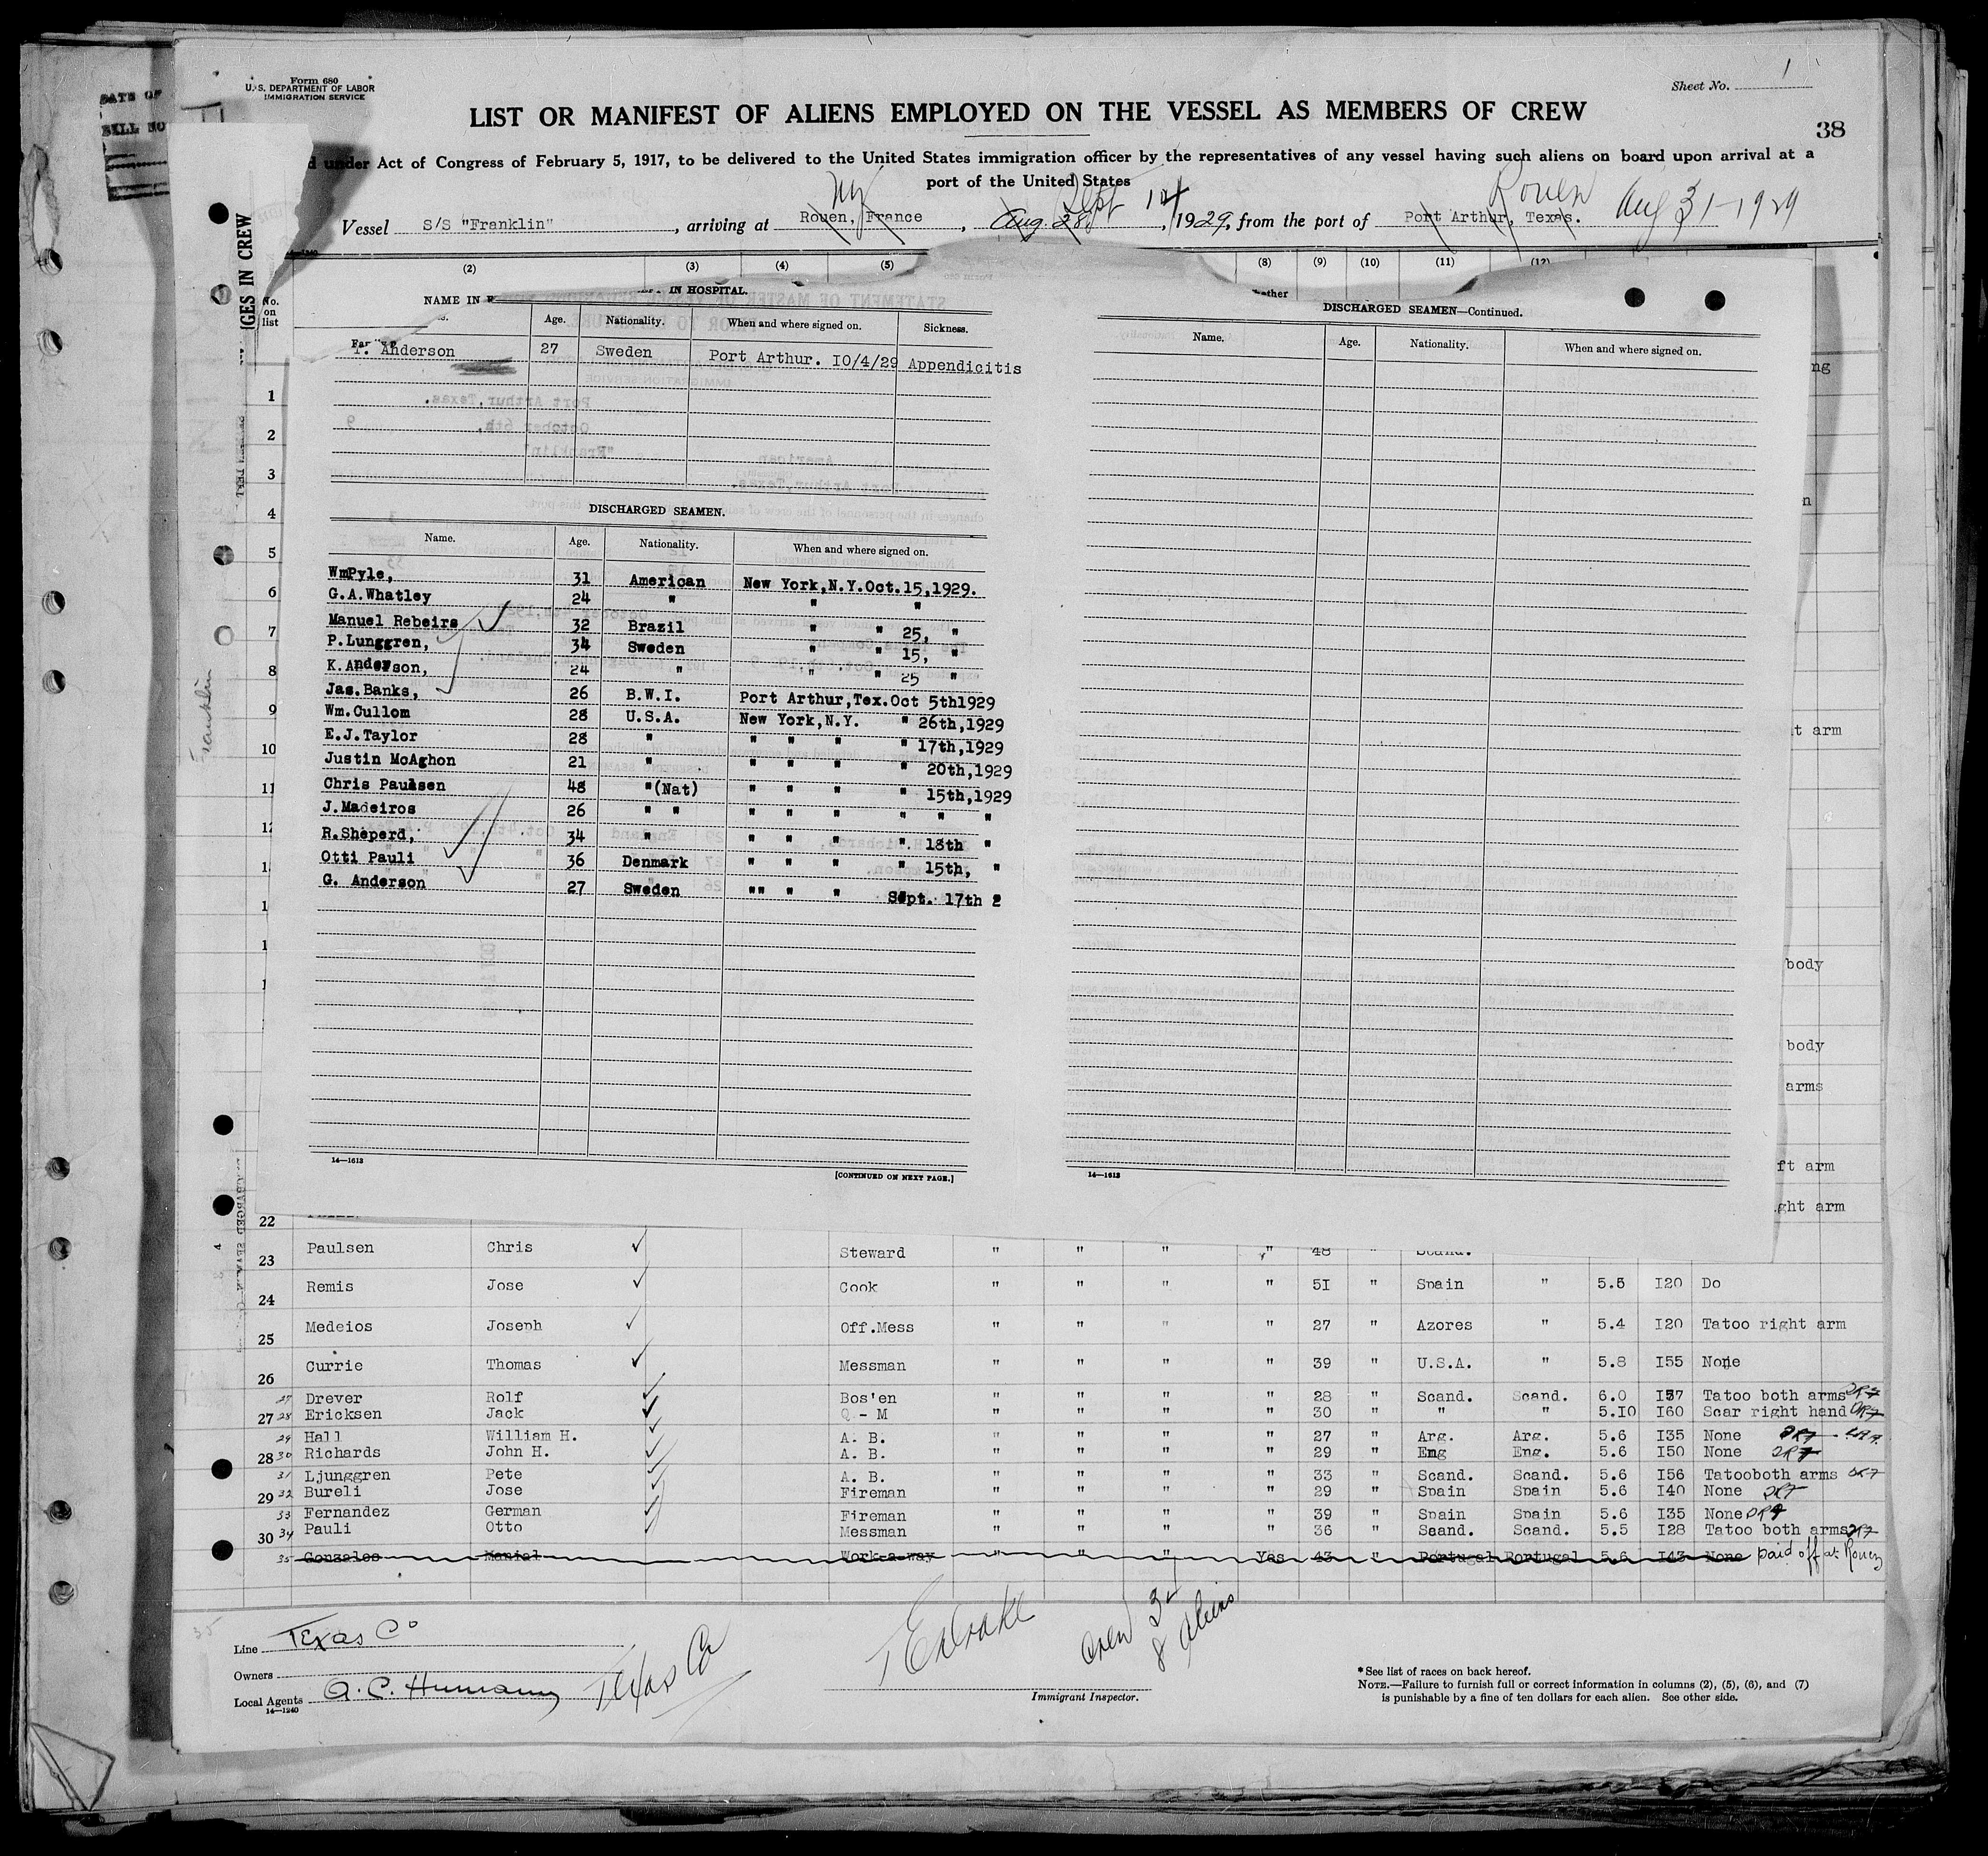 Form 680
U. S. DEPARTMENT OF LABOR
IMMIGRATION SERVICE
Sheet No. 1
LIST OR MANIFEST OF ALIENS EMPLOYED ON THE VESSEL AS MEMBERS OF CREW
38
under Act of Congress of February 5, 1917, to be delivered to the United States immigration officer by the representatives of any vessel having such aliens on board upon arrival at a
port of the United States
Vessel S/S "Franklin", arriving at Rouen, France NY, Aug. 28 Sept 14, 1929, from the port of Port Arthur, Texas. Rouen Aug 31-1929
(2) (3) (4) (5) (8) (9) (10) (11) (12)
No. on list
NAME IN
IN HOSPITAL.
Age. Nationality. When and where signed on. Sickness.
Anderson 27 Sweden Port Arthur. 10/4/29 Appendicitis
DISCHARGED SEAMEN.
Name. Age. Nationality. When and where signed on.
WmPyle, 31 American New York,N.Y.Oct.15,1929.
G.A.Whatley 24 " " "
Manuel Rebeirs 32 Brazil " " 25, "
P.Lunggren, 34 Sweden " " 15, "
K.Anderson, 24 " " " 25 "
Jas.Banks, 26 B.W.I. Port Arthur,Tex.Oct 5th1929
Wm.Cullom 28 U.S.A. New York,N.Y. " 26th,1929
E.J.Taylor 28 " " " " " 17th,1929
Justin McAghon 21 " " " " " 20th,1929
Chris Paulsen 48 "(Nat) " " " " 15th,1929
J.Madeiros 26 " " " " " " " "
R.Sheperd, 34 " " " " " 18th "
Otti Pauli 36 Denmark " " " " 15th, "
G. Anderson 27 Sweden "" " " Sept. 17th 2
14—1613
[CONTINUED ON NEXT PAGE.]
DISCHARGED SEAMEN—Continued.
Name. Age. Nationality. When and where signed on.
14—1613
t arm
body
body
arms
ft arm
ght arm
1
2
3
4
5
6
7
8
9
10
11
22
23 Paulsen Chris Steward " " " " 48 " Scand.
24 Remis Jose Cook " " " " 5I " Spain " 5.5 I20 Do
25 Medeios Joseph Off.Mess " " " " 27 " Azores " 5.4 I20 Tatoo right arm
26 Currie Thomas Messman " " " " 39 " U.S.A. " 5.8 I55 None
27 Drever Rolf Bos'en " " " " 28 " Scand. Scand. 6.0 I57 Tatoo both arms
27 28 Ericksen Jack Q - M " " " " 30 " " " 5.IO I60 Scar right hand
29 Hall William H. A. B. " " " " 27 " Arg. Arg. 5.6 I35 None
28 30 Richards John H. A. B. " " " " 29 " Eng Eng. 5.6 I50 None
31 Ljunggren Pete A. B. " " " " 33 " Scand. Scand. 5.6 I56 Tatooboth arms
29 32 Bureli Jose Fireman " " " " 29 " Spain Spain 5.6 I40 None
33 Fernandez German Fireman " " " " 39 " Spain Spain 5.6 I35 None
30 34 Pauli Otto Messman " " " " 36 " Scand. Scand. 5.5 I28 Tatoo both arms
35 Gonzales Manial Work-a-way " " " Yes 43 " Portugal Portugal 5.6 I43 None paid off at Rouen
Line Texas Co
Owners
Local Agents
14—1240
Texas Co
Crew 32
8 Aliens
Immigrant Inspector.
* See list of races on back hereof.
NOTE.—Failure to furnish full or correct information in columns (2), (5), (6), and (7)
is punishable by a fine of ten dollars for each alien. See other side.